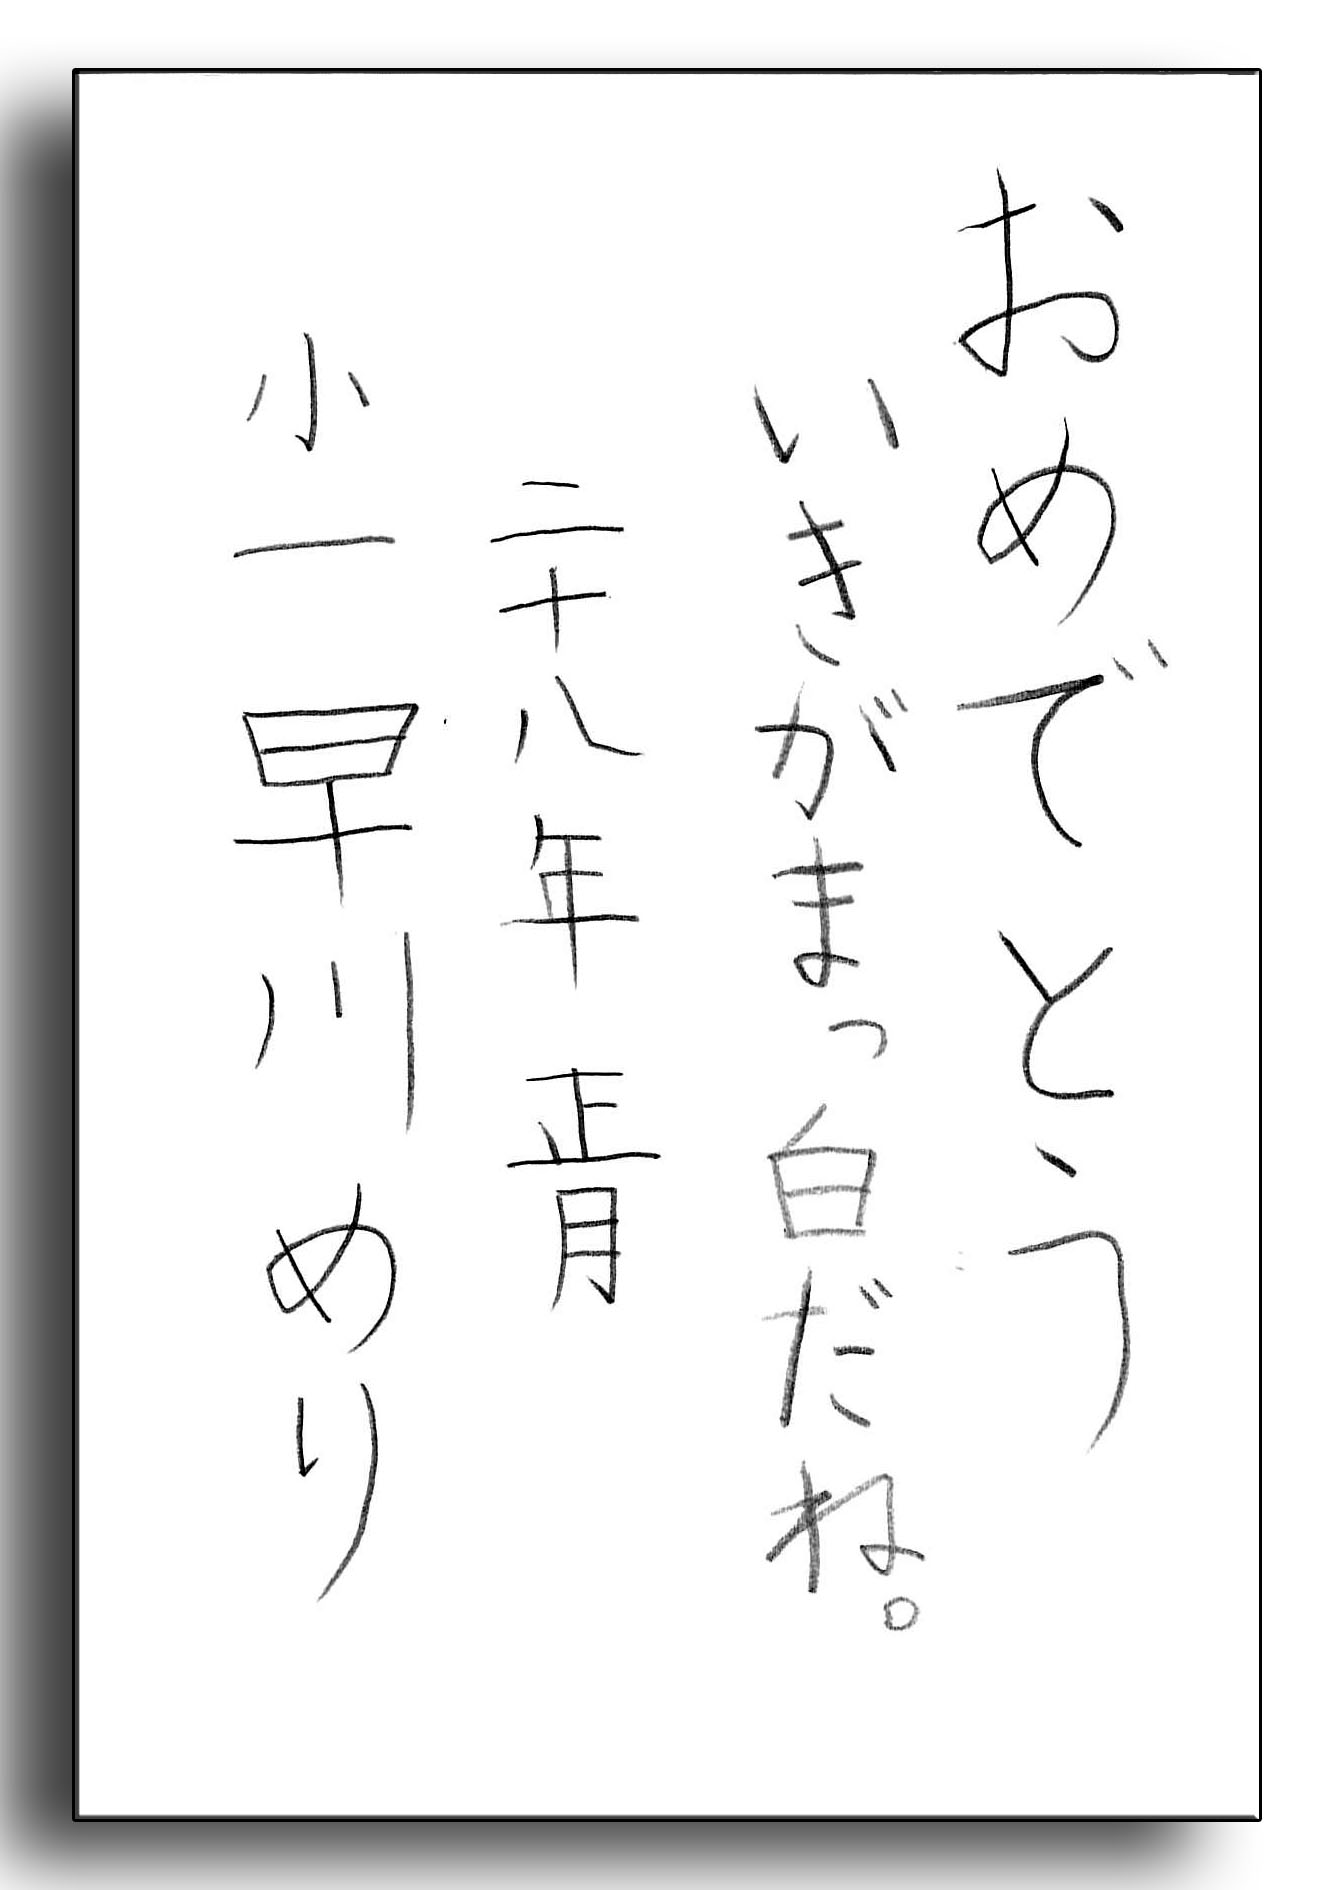 おめでとう
いきがまっ白だね。
二十八年正月
小一早川めり